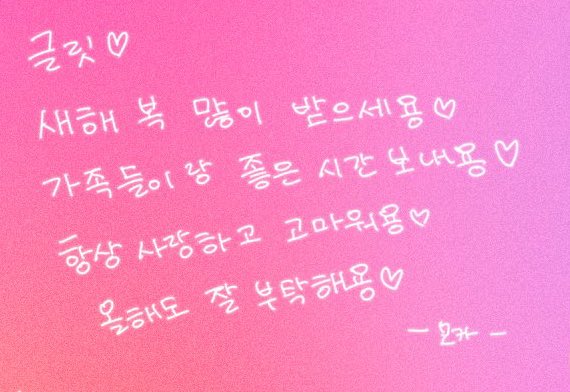 글릿♡
새해 복 많이 받으세용♡
가족들이랑 좋은 시간 보내용♡
항상 사랑하고 고마워용♡
올해도 잘 부탁해용♡
- 모카 -